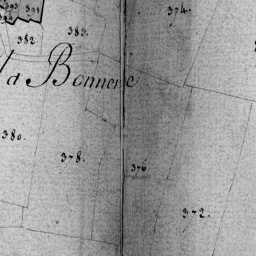 374.
391
382
383.
la Bonnerie
380.
378.
376
372.